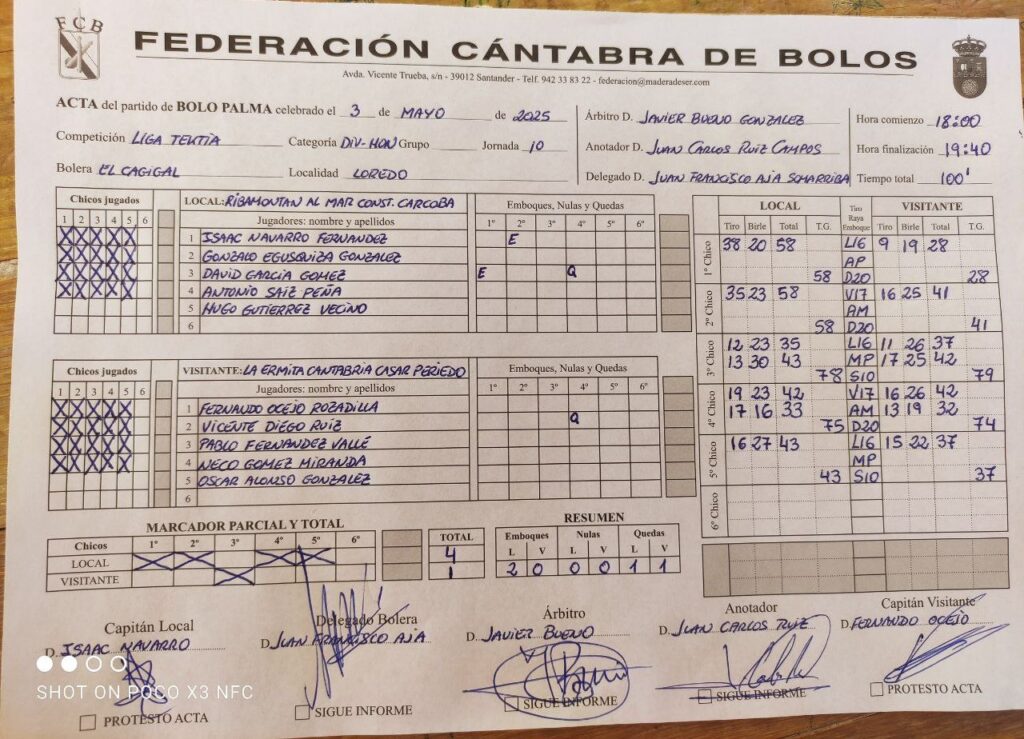 FCB
FEDERACIÓN CÁNTABRA DE BOLOS
Avda. Vicente Trueba, s/n - 39012 Santander - Telf. 942 33 83 22 - federacion@maderadeser.com
ACTA del partido de BOLO PALMA celebrado el 3 de MAYO de 2025
Competición LIGA TEKTIA Categoría DIV-HON Grupo Jornada 10
Bolera EL CAGIGAL Localidad LOREDO
Árbitro D. JAVIER BUENO GONZALEZ
Anotador D. JUAN CARLOS RUIZ CAMPOS
Delegado D. JUAN FRANCISCO AJA SOMARRIBA
Hora comienzo 18:00
Hora finalización 19:40
Tiempo total 100'
Chicos jugados
1 2 3 4 5 6
LOCAL: RIBAMONTAN AL MAR CONST. CARCOBA
Jugadores: nombre y apellidos
Emboques, Nulas y Quedas
1º 2º 3º 4º 5º 6º
1 ISAAC NAVARRO FERNANDEZ E
2 GONZALO EGUSQUIZA GONZALEZ
3 DAVID GARCIA GOMEZ E Q
4 ANTONIO SAIZ PEÑA
5 HUGO GUTIERREZ VECINO
6
Chicos jugados
1 2 3 4 5 6
VISITANTE: LA ERMITA CANTABRIA CASAR PERIEDO
Jugadores: nombre y apellidos
Emboques, Nulas y Quedas
1º 2º 3º 4º 5º 6º
1 FERNANDO OCEJO ROZADILLA
2 VICENTE DIEGO RUIZ Q
3 PABLO FERNANDEZ VALLE
4 NECO GOMEZ MIRANDA
5 OSCAR ALONSO GONZALEZ
6
LOCAL Tiro Raya Emboque VISITANTE
Tiro Birle Total T.G. Tiro Birle Total T.G.
1º Chico 38 20 58 L16 9 19 28
AP
58 D20 28
2º Chico 35 23 58 V17 16 25 41
AM
58 D20 41
3º Chico 12 23 35 L16 11 26 37
13 30 43 MP 17 25 42
78 S10 79
4º Chico 19 23 42 V17 16 26 42
17 16 33 AM 13 19 32
75 D20 74
5º Chico 16 27 43 L16 15 22 37
MP
43 S10 37
6º Chico
MARCADOR PARCIAL Y TOTAL
Chicos 1º 2º 3º 4º 5º 6º TOTAL
LOCAL X X X X 4
VISITANTE X 1
RESUMEN
Emboques Nulas Quedas
L V L V L V
2 0 0 0 1 1
Capitán Local
D. ISAAC NAVARRO
PROTESTO ACTA
Delegado Bolera
D. JUAN FRANCISCO AJA
SIGUE INFORME
Árbitro
D. JAVIER BUENO
SIGUE INFORME
Anotador
D. JUAN CARLOS RUIZ
SIGUE INFORME
Capitán Visitante
D. FERNANDO OCEJO
PROTESTO ACTA
SHOT ON POCO X3 NFC